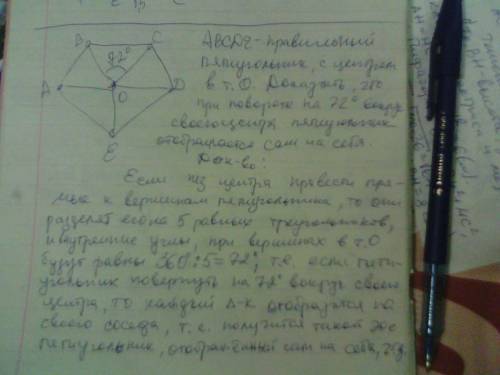 B
C
72°
A
O
D
E
ABCDE - правильный
пятиугольник, с центром
в т. О. Доказать, что
при повороте на 72° вокруг
своего центра пятиугольник
отображается сам на себя.
Док-во:
Если из центра провести пря-
мые к вершинам пятиугольника, то они
разделят его на 5 равных треугольников,
и внутренние углы, при вершинах в т. О
будут равны 360:5=72°, т.е. если пяти-
угольник повернуть на 72° вокруг своего
центра, то каждый Δ-к отобразится на
своего соседа, т.е. получится такой же
пятиугольник, отображённый сам на себя, чтд.